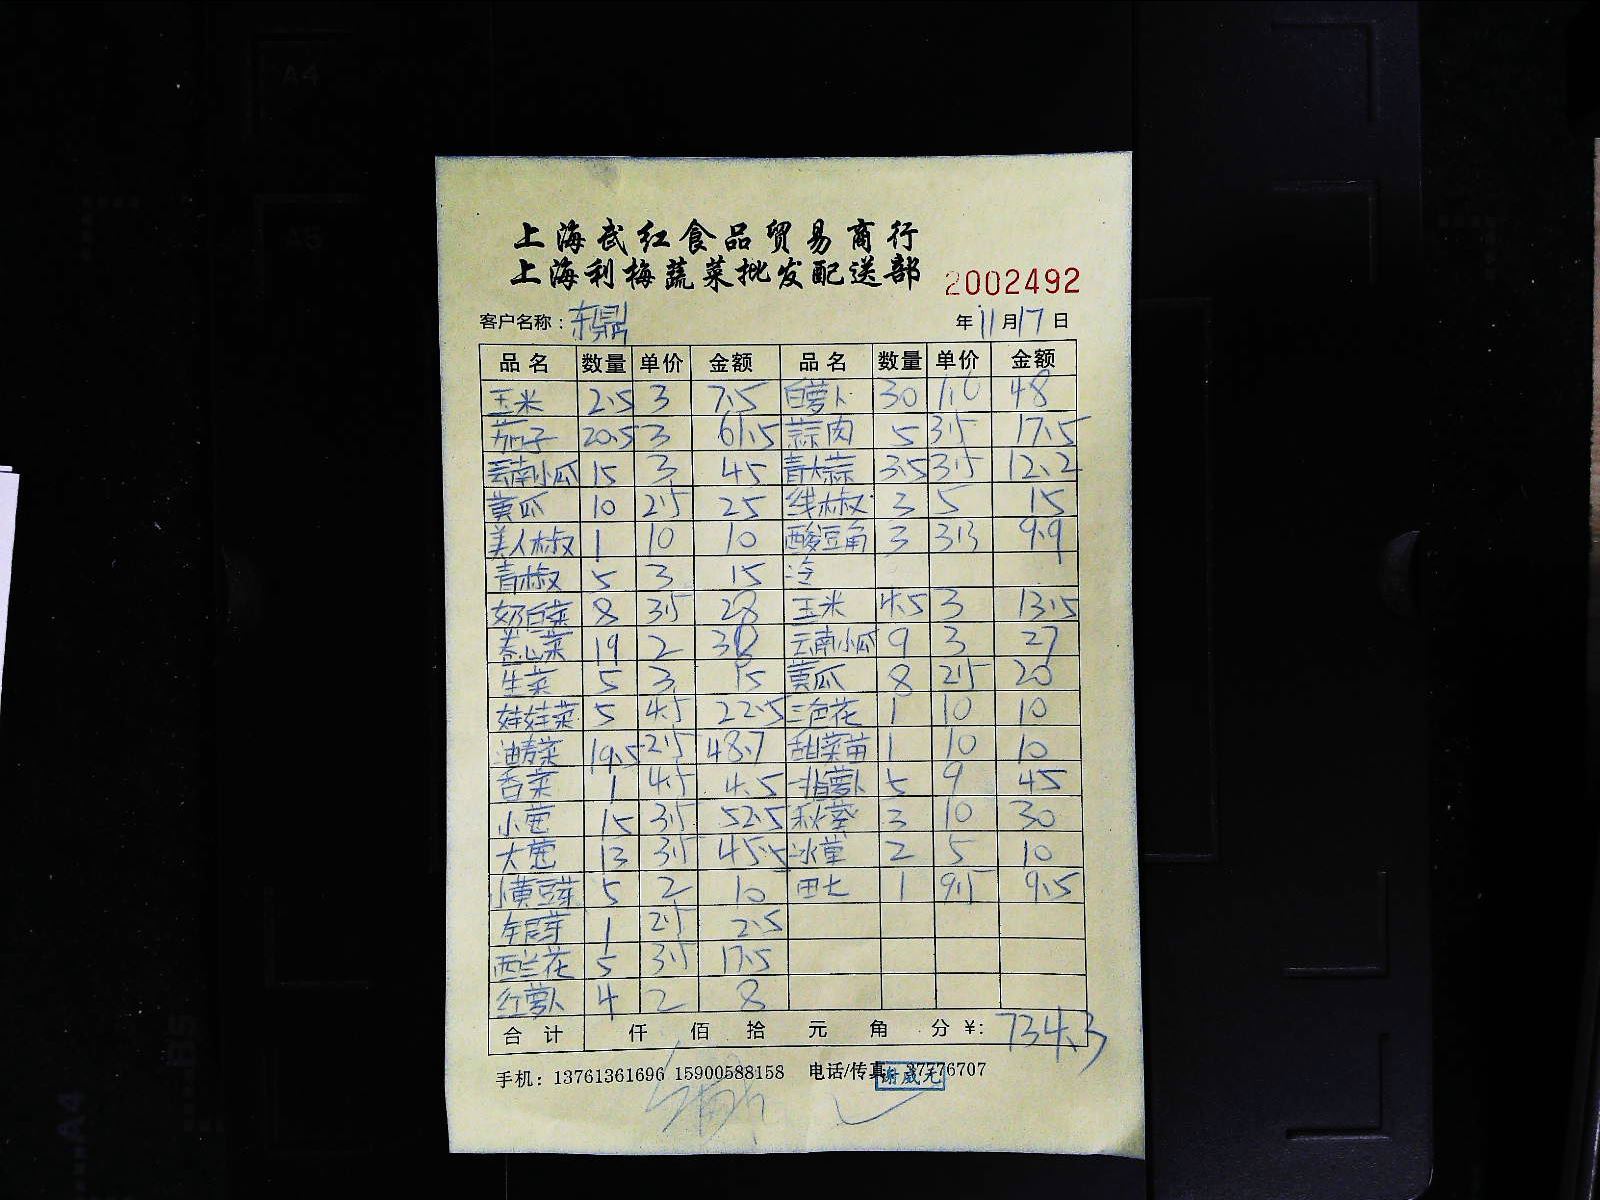 上海武红食品贸易商行
上海利梅蔬菜批发配送部
2002492
客户名称：东鼎 年11月17日
品名 数量 单价 金额 品名 数量 单价 金额
玉米 2.5 3 7.5 白萝卜 30 1.6 48
茄子 20.5 3 61.5 蒜肉 5 3.5 17.5
云南小瓜 15 3 45 青大蒜 3.5 3.5 12.2
黄瓜 10 2.5 25 线椒 3 5 15
美人椒 1 10 10 酸豆角 3 3.3 9.9
青椒 5 3 15 冷
奶白菜 8 3.5 28 玉米 4.5 3 13.5
卷心菜 19 2 38 云南小瓜 9 3 27
生菜 5 3 15 黄瓜 8 2.5 20
娃娃菜 5 4.5 22.5 三色花 1 10 10
油麦菜 19.5 2.5 48.7 甜菜苗 1 10 10
香菜 1 4.5 4.5 指萝卜 5 9 45
小葱 15 3.5 52.5 秋葵 3 10 30
大葱 13 3.5 45.5 冰 2 5 10
小黄豆芽 5 2 10 1 9.5 9.5
芽 1 2.5 2.5
西兰花 5 3.5 17.5
红萝卜 4 2 8
合计 仟 佰 拾 元 角 分 ¥: 734.3
手机：13761361696 15900588158 电话/传真：37776707
谢威元